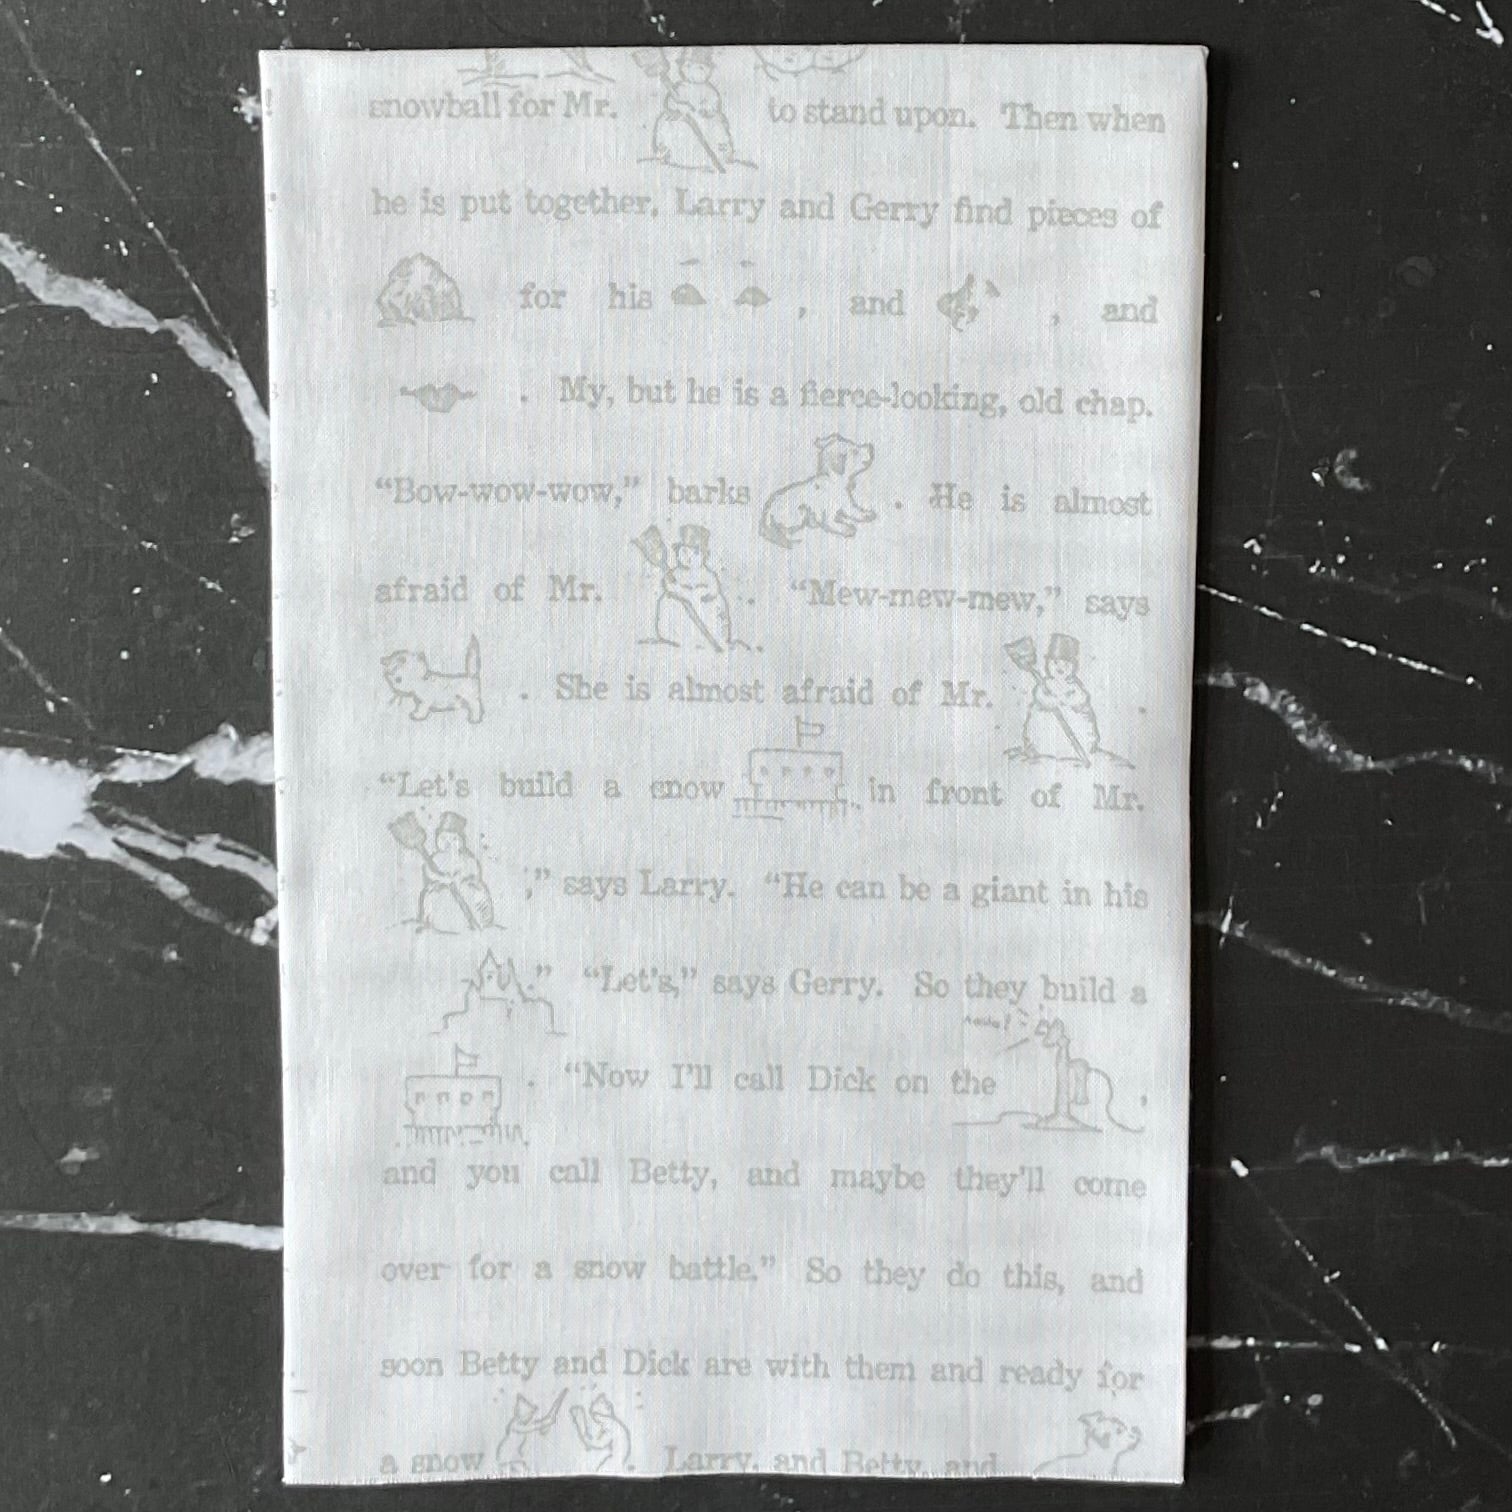 snowball for Mr. to stand upon. Then when
he is put together, Larry and Gerry find pieces of
for his , and , and
. My, but he is a fierce-looking, old chap.
“Bow-wow-wow,” barks . He is almost
afraid of Mr. . “Mew-mew-mew,” says
. She is almost afraid of Mr. .
“Let's build a snow in front of Mr.
,” says Larry. “He can be a giant in his
.” “Let's,” says Gerry. So they build a
. “Now I'll call Dick on the ,
and you call Betty, and maybe they'll come
over for a snow battle.” So they do this, and
soon Betty and Dick are with them and ready for
a snow . Larry, and Betty, and